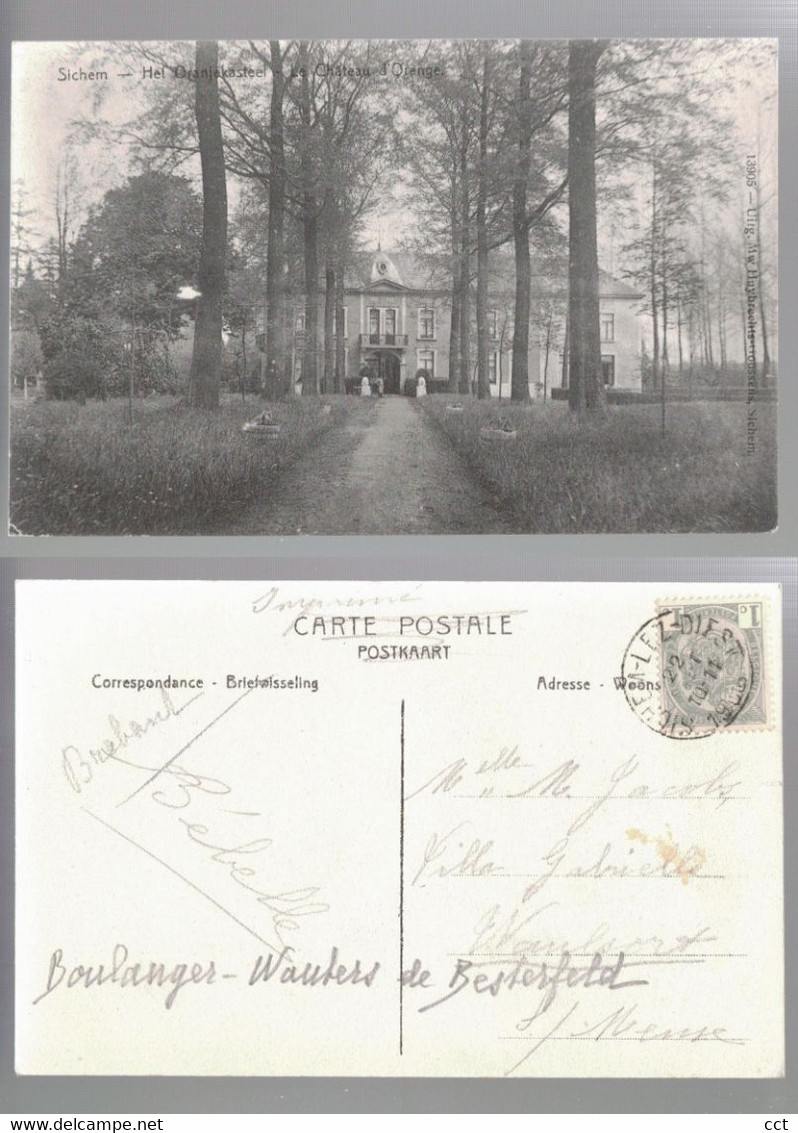 Sichem — Het Oranjekasteel - Le Château d'Orange.
13905 — Uitg. Mw Huybrechts-Goossens, Sichem.
Imprimé
CARTE POSTALE
POSTKAART
Correspondance - Briefwisseling
Adresse - Woons
1 c 1
SICHEM-LEZ-DIEST
22
10-11
Brabant
Bébelle
Melle M. Jacobs
Villa Gabrielle
Waulsort
s/Meuse
Boulanger-Wauters de Besterfeld
cct